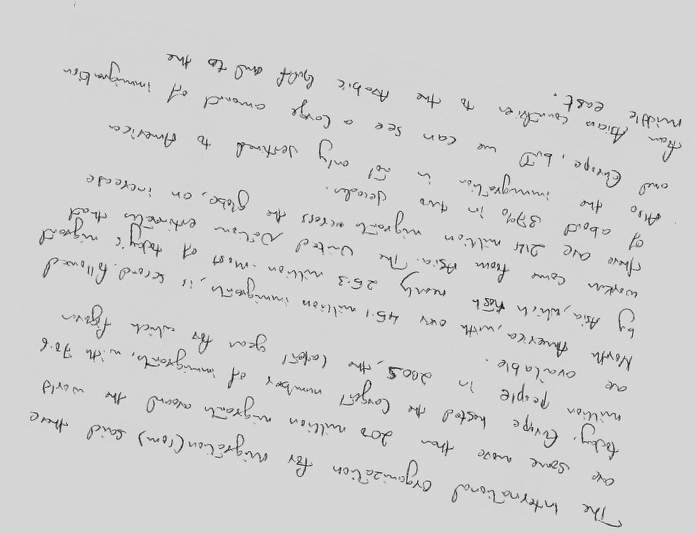 The International Organization for Migration (IOM) said there
are some more than 200 million migrants around the world
today. Europe hosted the largest number of immigrants, with 70.6
million people in 2005, the latest year for which figures
are available.
North America, with over 45.1 million immigrants, is second, followed
by Asia, which nearly 25.3 million. Most of today's migrant
workers come from Asia. The United Nations estimates that
there are 214 million migrants across the globe, an increase
of about 37% in two decades.
Also the immigration is not only destined to America
and Europe, but, we can see a large amount of immigration
from Asian countries to the Arabic Gulf and to the
middle east.